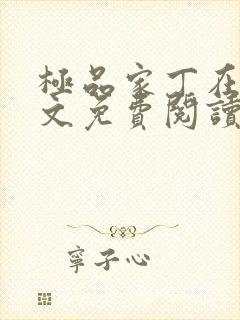 極品家丁在
文免費閱讀
寧子心